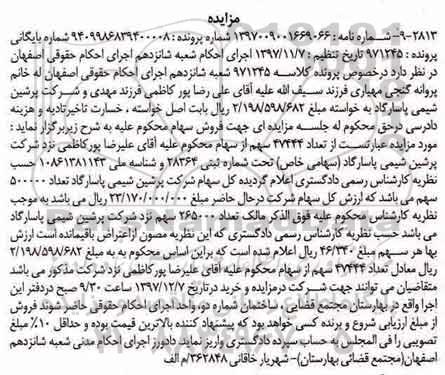 مزایده
۲۸۱۳-۹- شماره نامه : ۱۳۹۷۰۰۹۰۰۱۶۶۹۰۶۶ شماره پرونده : ۹۴۰۹۹۸۶۸۳۹۴۰۰۰۰۸ شماره بایگانی
پرونده : ۹۷۱۲۴۵ تاریخ تنظیم : ۱۳۹۷/۱۱/۷ اجرای احکام شعبه شانزدهم اجرای احکام حقوقی اصفهان
در نظر دارد درخصوص پرونده کلاسه ۹۷۱۲۴۵ شعبه شانزدهم اجرای احکام حقوقی اصفهان له خانم
پروانه گنجی مهیاری فرزند سیف الله علیه آقای علی رضا پور کاظمی فرزند مهدی و شرکت پرشین
شیمی پاسارگاد به خواسته مبلغ ۲/۱۹۸/۵۹۸/۶۸۲ ریال بابت اصل خواسته ، خسارت تاخیرتادیه و هزینه
دادرسی درحق محکوم له جلسه مزایده ای جهت فروش سهام محکوم علیه به شرح زیربرگزار نماید :
مورد مزایده عبارتست از تعداد ۴۷۴۴۴ سهم از سهام محکوم علیه آقای علیرضا پورکاظمی نزد شرکت
پرشین شیمی پاسارگاد (سهامی خاص) تحت شماره ثبتی ۲۸۳۶۴ و شناسه ملی ۱۰۸۶۱۳۸۱۱۴۳ حسب
نظریه کارشناس رسمی دادگستری اعلام گردیده کل سهام شرکت پرشین شیمی پاسارگاد تعداد ۵۰۰۰۰۰
سهم می باشد که ارزش کل سهام شرکت درحال حاضر مبلغ ۲۳/۱۷۰/۰۰۰/۰۰۰ ریال می باشد به موجب
نظریه کارشناس محکوم علیه فوق الذکر مالک تعداد ۲۶۵۰۰۰ سهم نزد شرکت پرشین شیمی پاسارگاد
می باشد حسب نظریه کارشناس رسمی دادگستری که این نظریه مصون ازاعتراض باقیمانده است ارزش
بها هر سهم مبلغ ۴۶/۳۴۰ ریال اعلام شده است که براین اساس محکوم به به مبلغ ۲/۱۹۸/۵۹۸/۶۸۲
ریال معادل تعداد ۴۷۴۴۴ سهم از سهام محکوم علیه آقای علیرضا پورکاظمی نزد شرکت مذکور می باشد
متقاضیان می توانند جهت شرکت درمزایده و خرید درتاریخ ۱۳۹۷/۱۲/۷ ساعت ۹/۳۰ صبح دردفتر این
اجرا واقع در بهارستان مجتمع قضایی، ساختمان شماره دو، واحد اجرای احکام حقوقی حاضر شوند فروش
از مبلغ ارزیابی شروع و برنده کسی خواهد بود که پیشنهاد کننده بالاترین قیمت بوده و حداقل ۱۰٪ مبلغ
تصویبی را فی المجلس به حساب سپرده دادگستری واریز نماید. دادورز اجرای احکام مدنی شعبه شانزدهم
اصفهان(مجتمع قضائی بهارستان)- شهریار خاقانی ۳۶۲۸۴۸/م الف